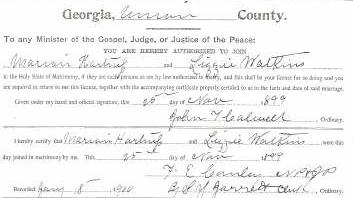 Georgia, Union County.
To any Minister of the Gospel, Judge, or Justice of the Peace:
YOU ARE HEREBY AUTHORIZED TO JOIN
Marion Hartnes and Lizzie Watkins
in the Holy State of Matrimony, if they are such persons as are by law authorized to marry, and this shall be your license for so doing and you
are required to return to me this license, together with the accompanying certificate properly certified to as to the facts and date of said marriage.
Given under my hand and official signature, this 25 day of Nov 1899
John T Colwell, Ordinary.
I hereby certify that Marion Hartnes and Lizzie Watkins were this
day joined in matrimony by me. This 25th day of Nov 1899
T. E. Conley NP & JP
Recorded Jany 8 1900 Garrett Clerk, Ordinary.